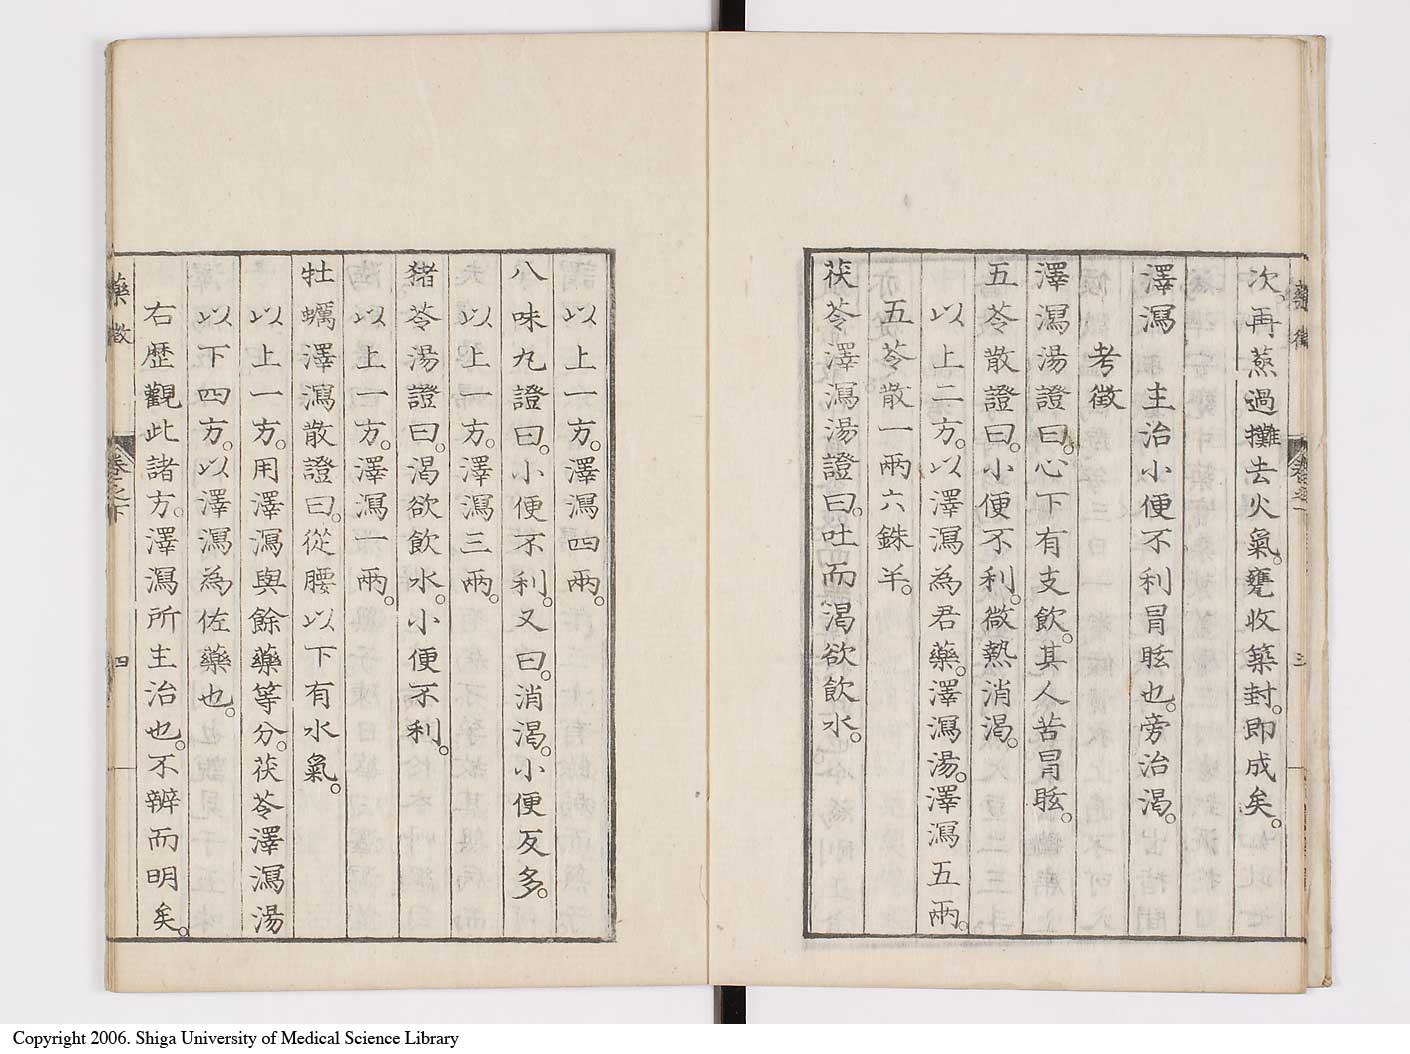 次再蒸過攤去火氣。甕收築封。即成矣。
澤瀉　主治小便不利冒眩也。旁治渴。
考徵
澤瀉湯證曰。心下有支飲。其人苦冒眩。
五苓散證曰。小便不利。微熱消渴。
以上二方。以澤瀉為君藥。澤瀉湯。澤瀉五兩。
五苓散一兩六銖半。
茯苓澤瀉湯證曰。吐而渴欲飲水。
以上一方。澤瀉四兩。
八味丸證曰。小便不利。又曰。消渴。小便反多。
以上一方。澤瀉三兩。
豬苓湯證曰。渴欲飲水。小便不利。
以上一方。澤瀉一兩。
牡蠣澤瀉散證曰。從腰以下有水氣。
以上一方。用澤瀉與餘藥等分。茯苓澤瀉湯
以下四方。以澤瀉為佐藥也。
右歷觀此諸方。澤瀉所主治也。不辨而明矣。
藥徵　卷之下　四
Copyright 2006. Shiga University of Medical Science Library